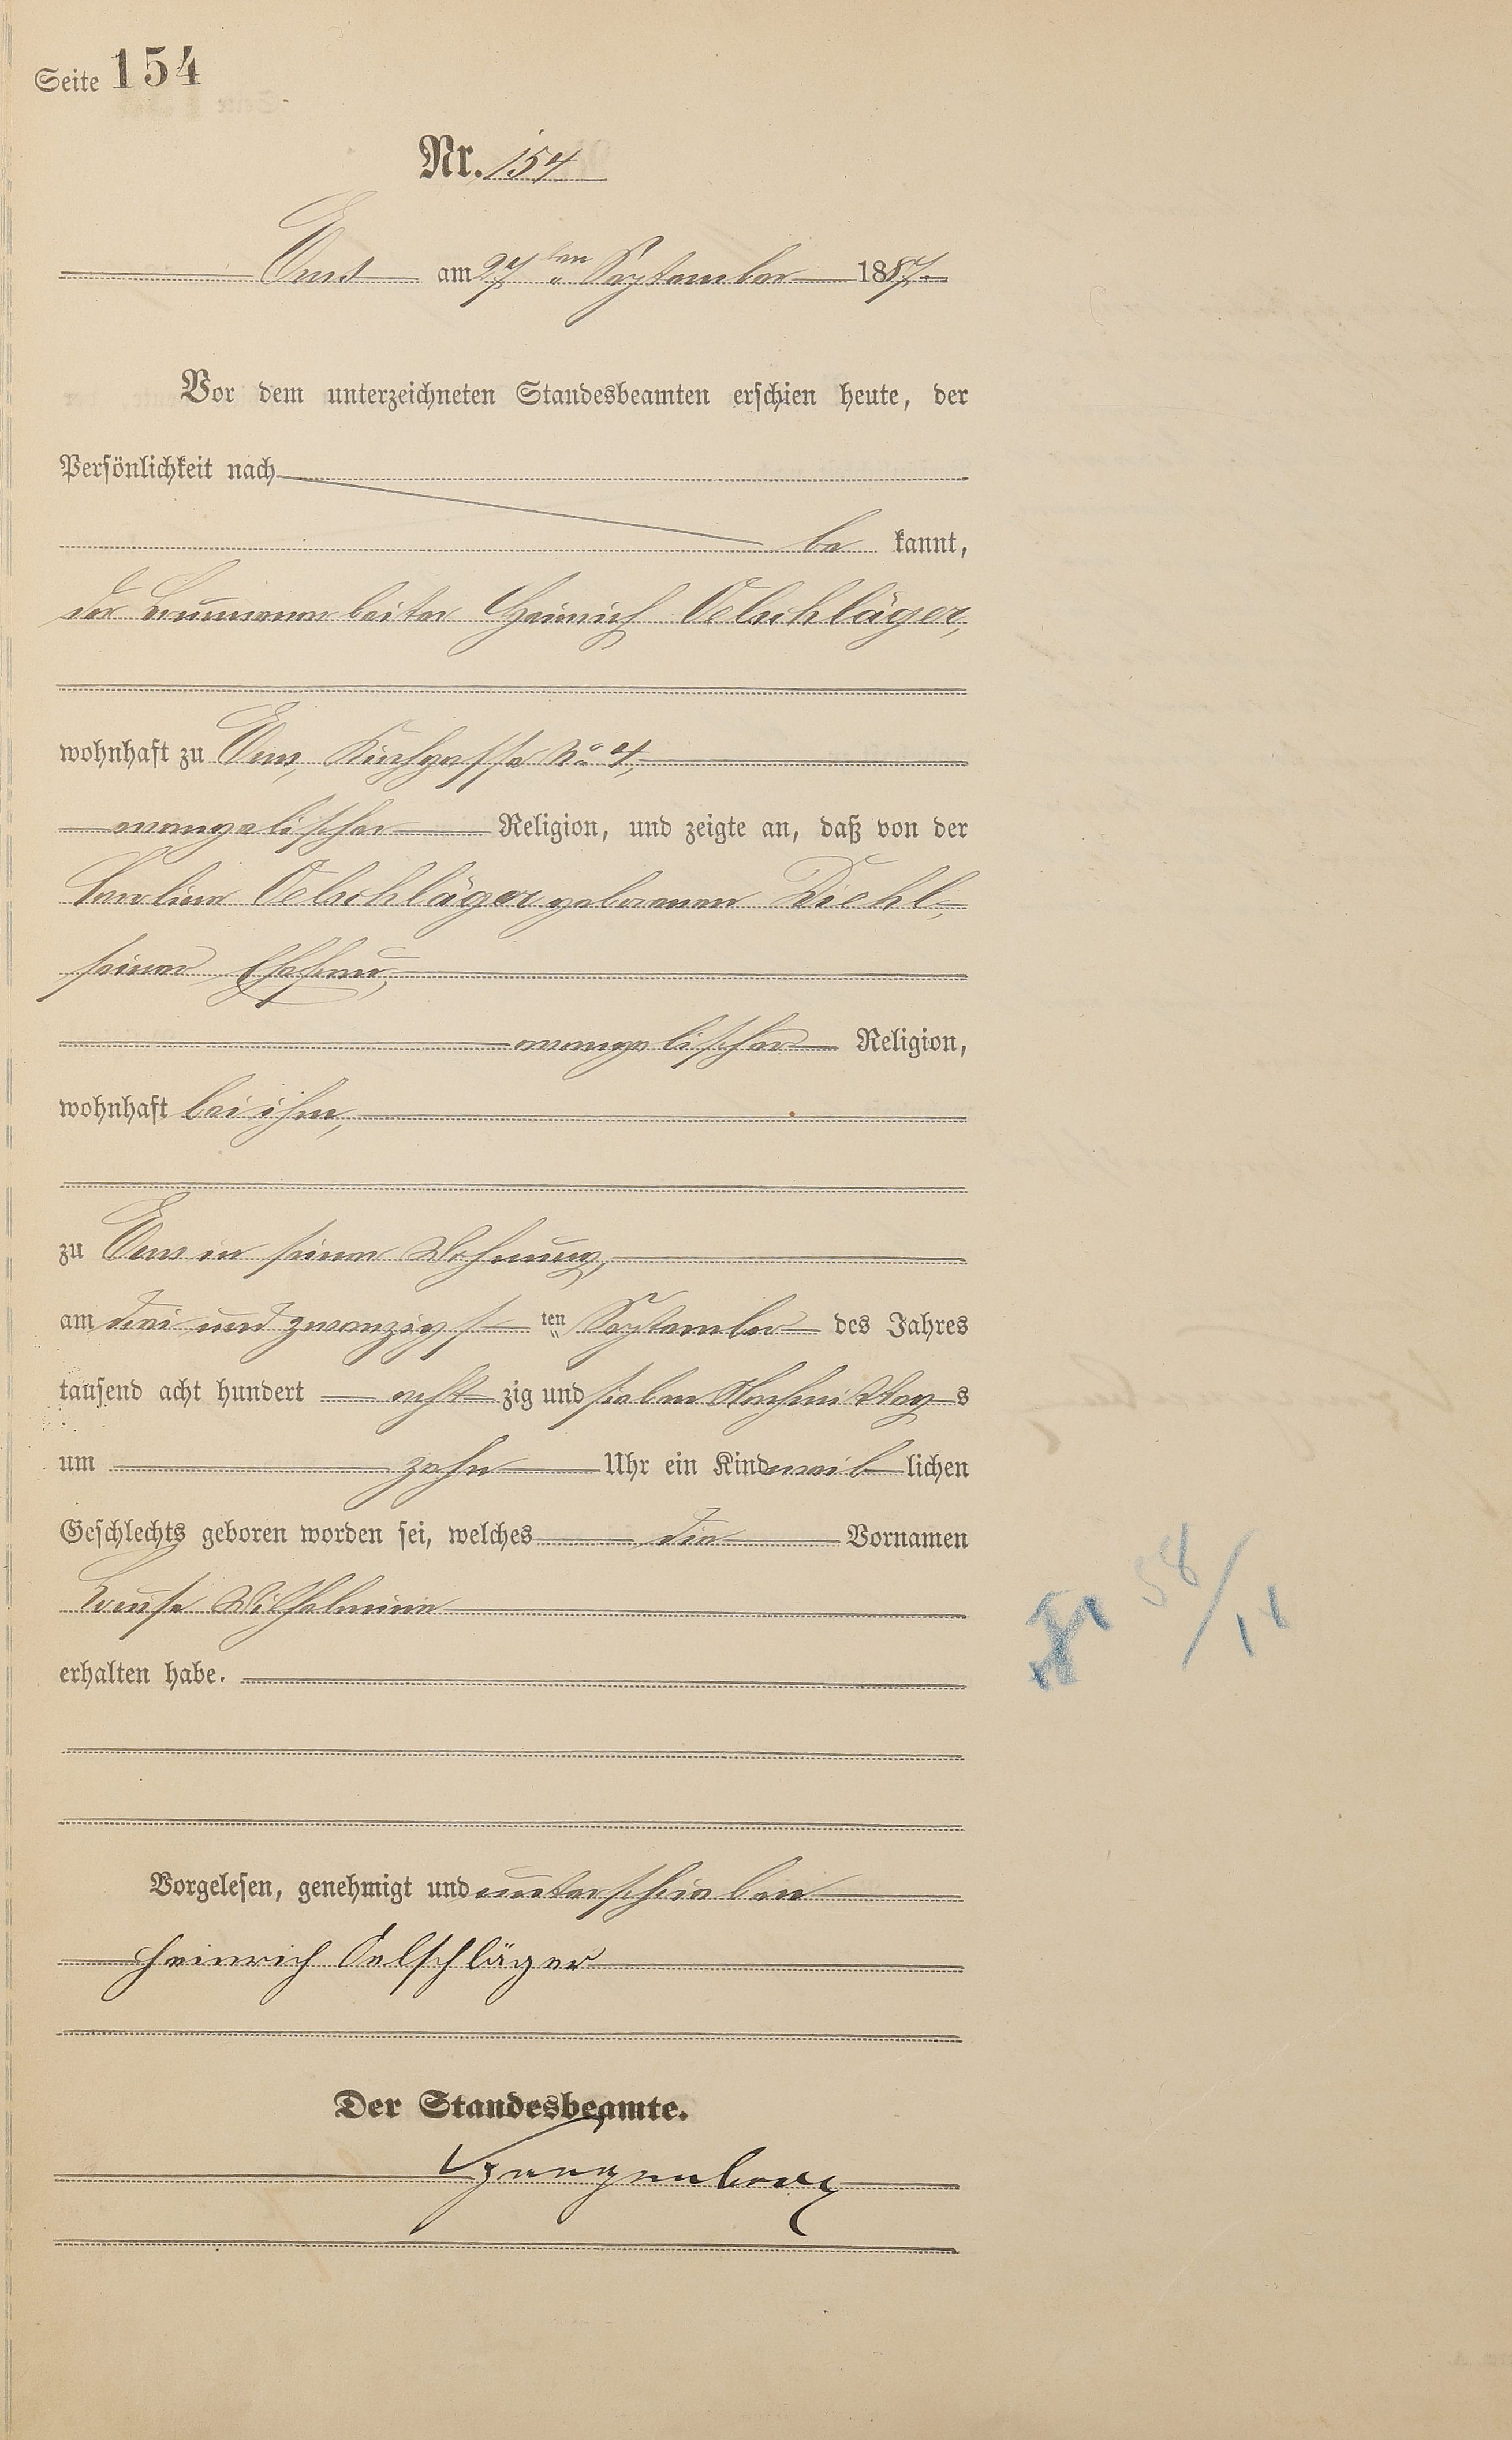 Seite 154
Nr. 154
Ems am 27ten September 1887.
Vor dem unterzeichneten Standesbeamten erschien heute, der
Persönlichkeit nach
be kannt,
der Brunnenarbeiter Heinrich Oelschläger,
wohnhaft zu Ems, Kirchgasse No 4,
evangelischer Religion, und zeigte an, daß von der
Karoline Oelschläger geborenen Diehl,
seiner Ehefrau,
evangelischer Religion,
wohnhaft bei ihm,
zu Ems in seiner Wohnung,
am drei und zwanzigsten September des Jahres
tausend acht hundert acht zig und sieben Nachmittags
um zehn Uhr ein Kind weib lichen
Geschlechts geboren worden sei, welches die Vornamen
Louise Wilhelmine
erhalten habe.
58/11
Vorgelesen, genehmigt und unterschrieben
Heinrich Oelschläger
Der Standesbeamte.